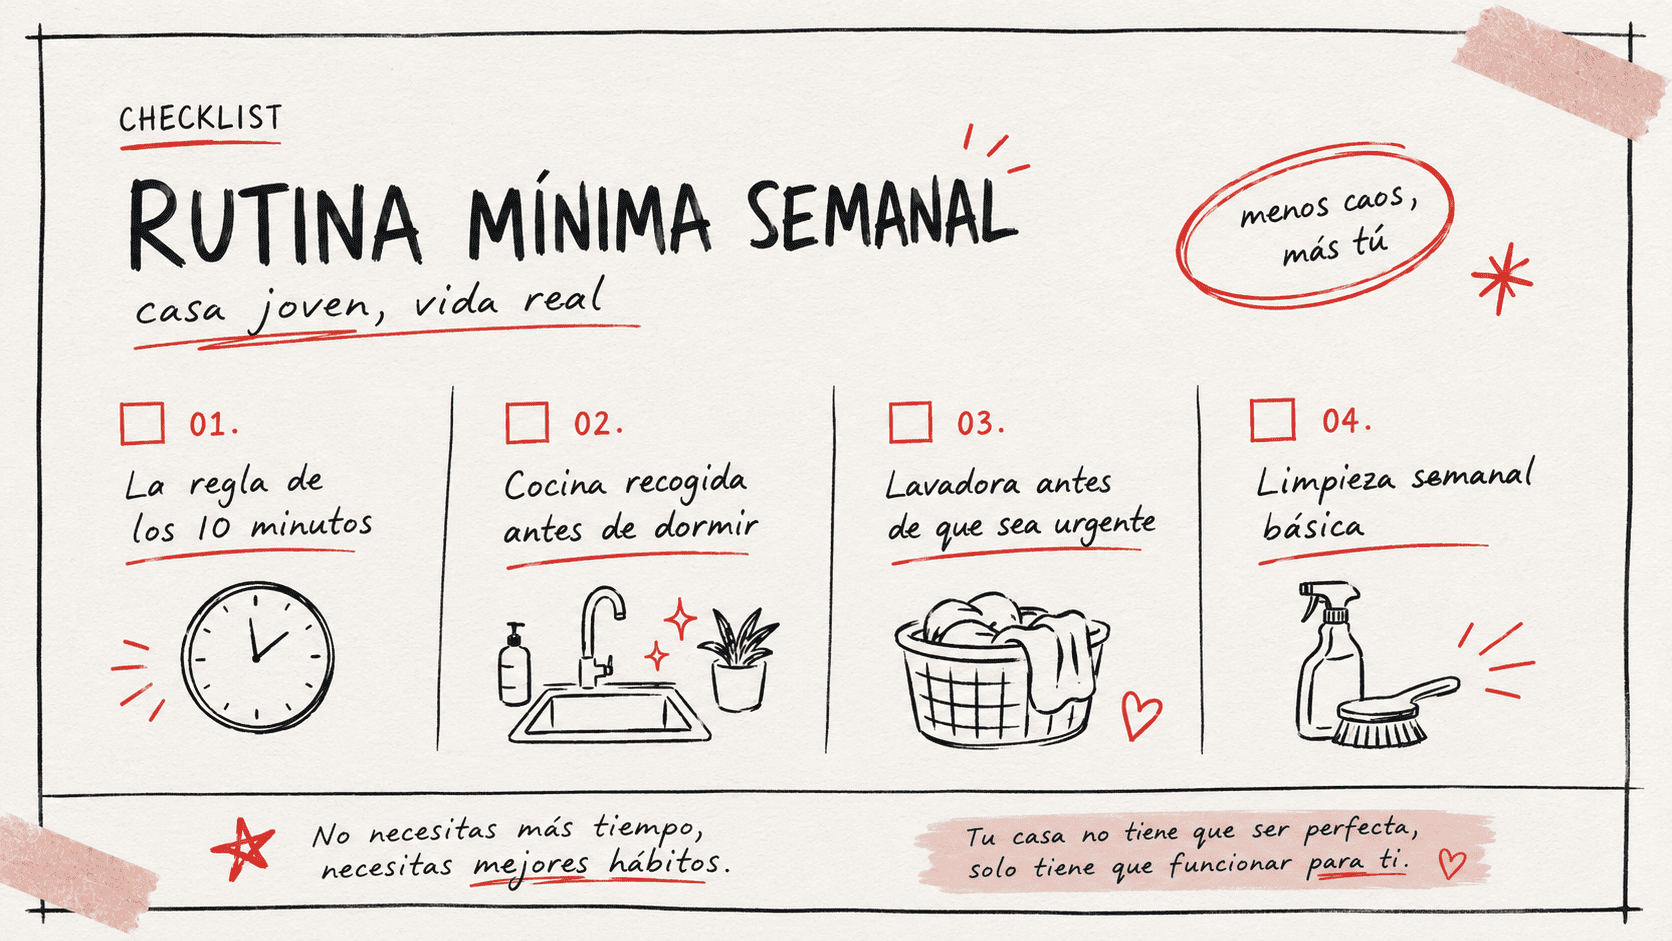 CHECKLIST
RUTINA MÍNIMA SEMANAL
casa joven, vida real
menos caos,
más tú
01.
La regla de
los 10 minutos
02.
Cocina recogida
antes de dormir
03.
Lavadora antes
de que sea urgente
04.
Limpieza semanal
básica
No necesitas más tiempo,
necesitas mejores hábitos.
Tu casa no tiene que ser perfecta,
solo tiene que funcionar para ti.